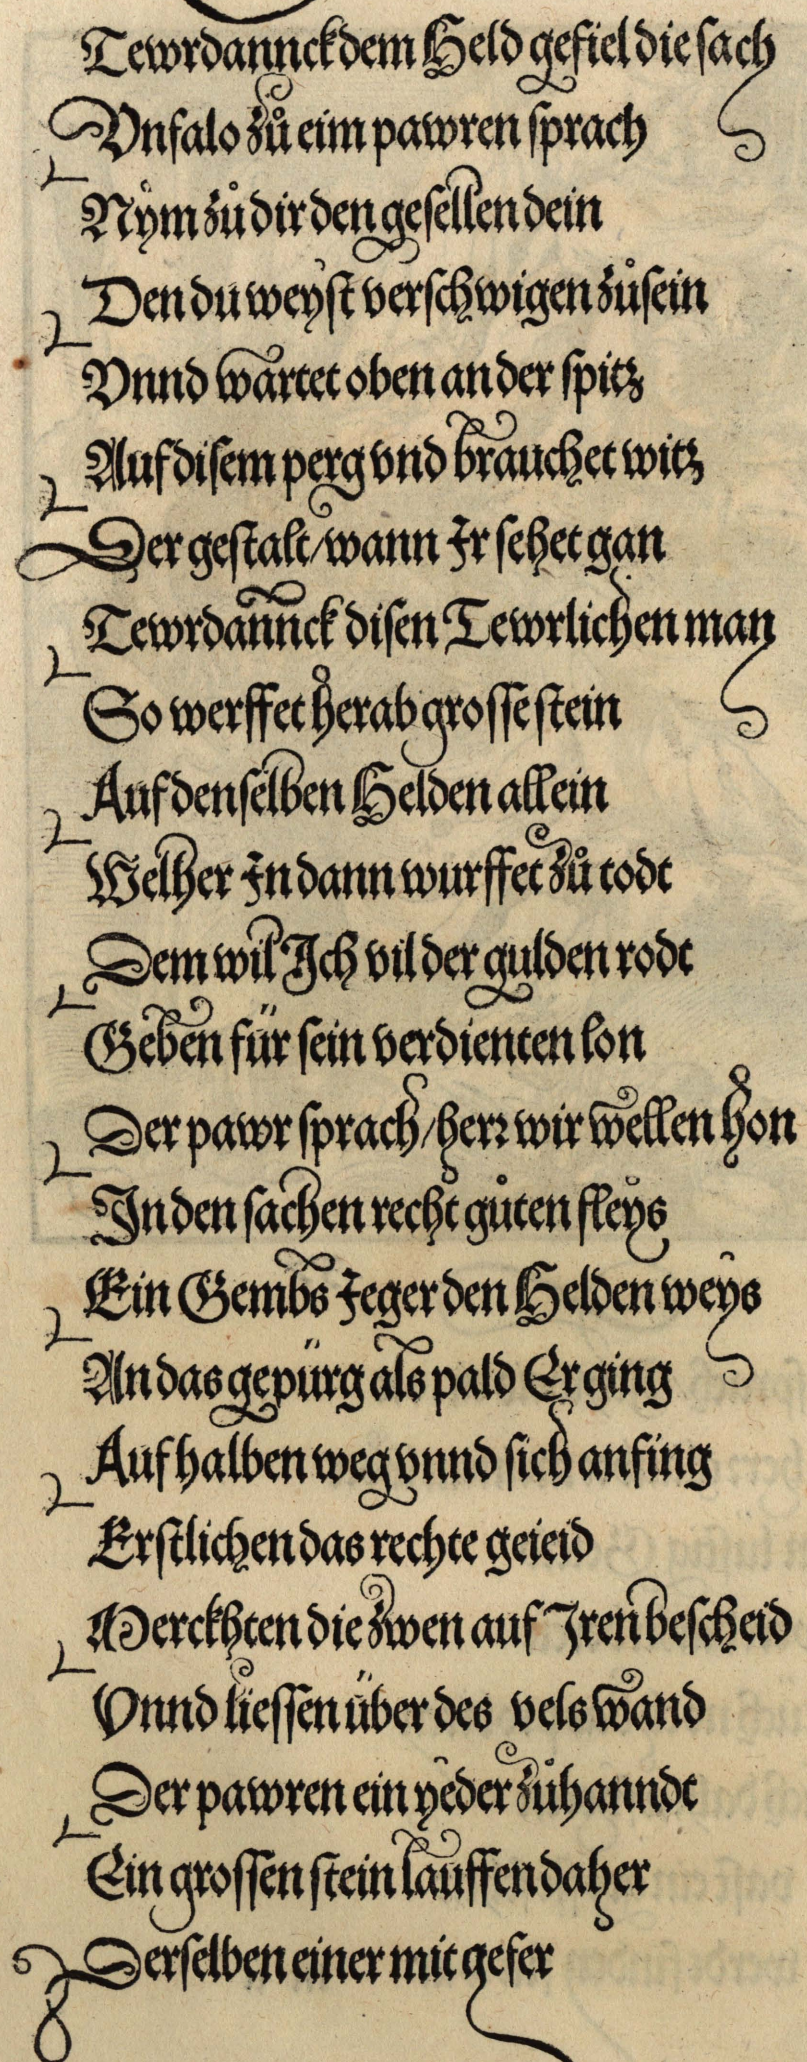 Tewrdannck dem Held gefiel die sach
Vnfalo zů eim pawren sprach
Nÿm zů dir den gesellen dein
Den du weÿst verschwigen zů sein
Vnnd wartet oben an der spitz
Auf disem perg vnd brauchet witz
Der gestalt/wann Ir sehet gan
Tewrdannck disen Tewrlichen man
So werffet herab grosse stein
Auf denselben Helden allein
Welher In dann wurffet zů todt
Dem wil Ich vil der gulden rodt
Geben für sein verdienten lon
Der pawr sprach/herr wir wellen hon
In den sachen recht gůten fleÿs
Ein Gembs Jeger den Helden weÿs
An das gepürg als pald Er ging
Auf halben weg vnnd sich anfing
Erstlichen das rechte geieid
Merckhten die zwen auf Iren bescheid
Vnnd liessen über des vels wand
Der pawren ein ÿeder zůhanndt
Ein grossen stein lauffen daher
Derselben einer mit gefer